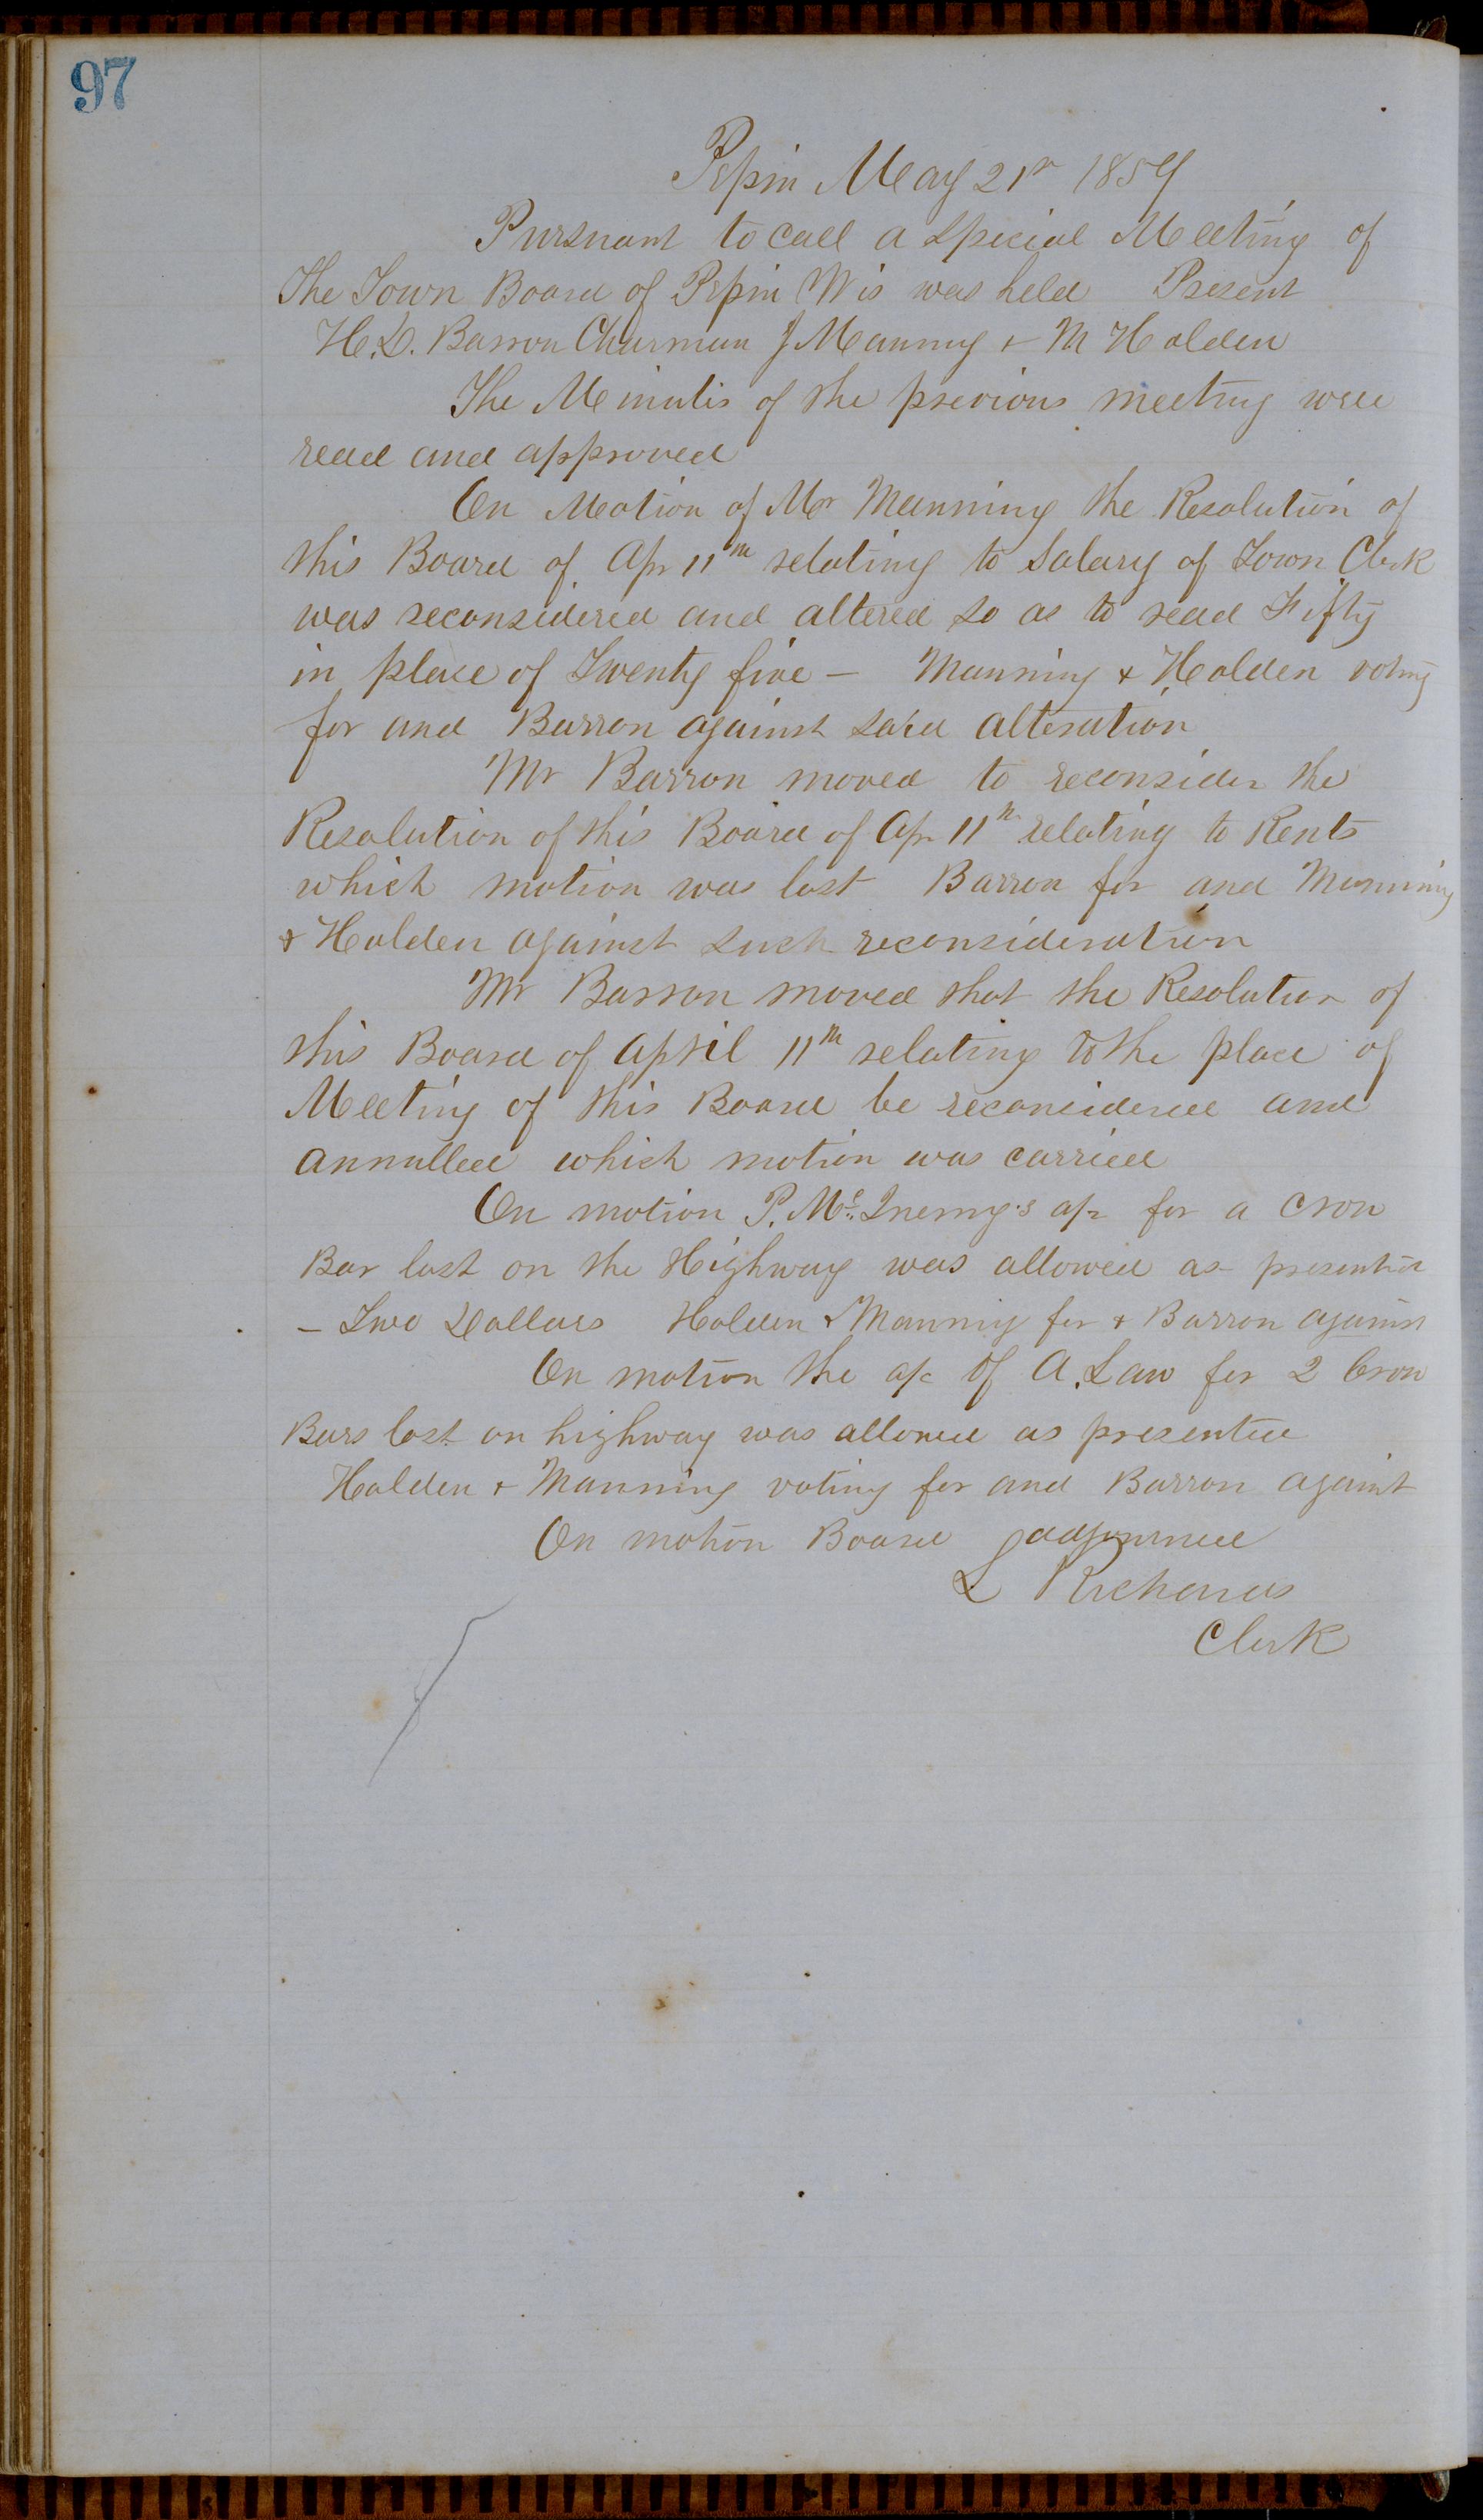 97
Pepin May 21st 1859
Pursuant to call a Special Meeting of
The Town Board of Pepin Wis was held Present
H.D. Barron Chairman J Manning + M Holden
The Minutes of the previous meeting were
read and approved
On Motion of Mr Manning the Resolution of
this Board of Apr 11th relating to Salary of Town Clerk
was reconsidered and altered so as to read Fifty
in place of Twenty five — Manning + Holden voting
for and Barron against said alteration
Mr Barron moved to reconsider the
Resolution of this Board of Apr 11th relating to Rents
which motion was lost Barron for and Manning
+ Holden against such reconsideration
Mr Barron moved that the Resolution of
this Board of April 11th relating to the place of
Meeting of this Board be reconsidered and
annulled which motion was carried
On motion P. Mc Inerny's a/c for a Crow
Bar lost on the Highway was allowed as presented
— Two Dollars Holden + Manning for + Barron against
On motion the a/c of A. Law for 2 Crow
Bars lost on highway was allowed as presented
Holden + Manning voting for and Barron against
On motion Board adjourned
L Richards
Clerk